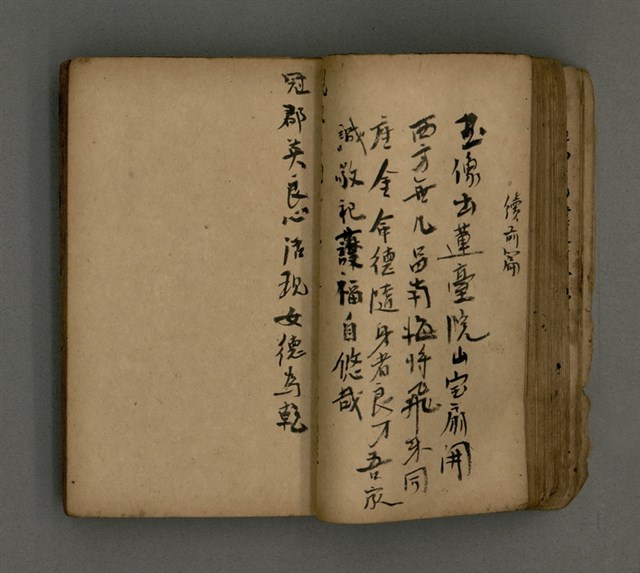 續前篇
玉像出蓮臺院山宝扇開
西方無凡品南海将飛来同
座金命德隨身者良才吾家
誠敬祀護福自悠哉
冠郡英良心活現女德為乾